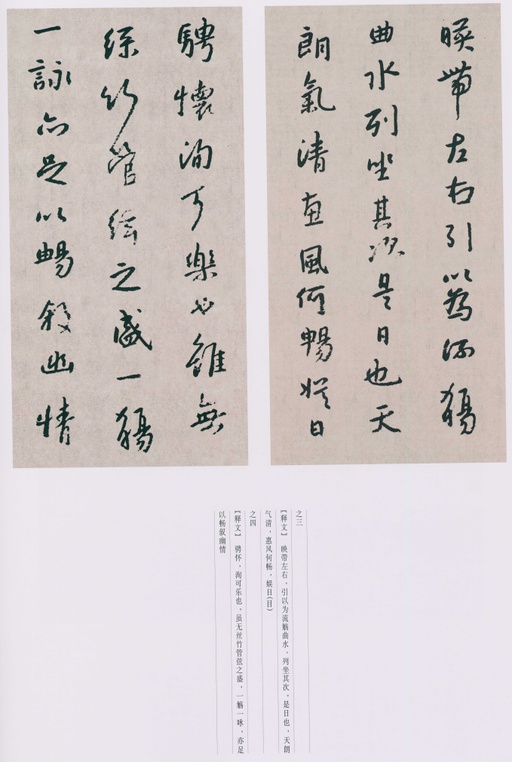 暎帶左右引以為流觴
曲水列坐其次是日也天
朗氣清惠風何暢娛日
騁懷洵可樂也雖無
絲竹管絃之盛一觴
一詠亦足以暢敘幽情
之三
【释文】 映带左右，引以为流觞曲水，列坐其次，是日也，天朗
气清，惠风何畅，娱日(目)
之四
【释文】 骋怀，洵可乐也，虽无丝竹管弦之盛，一觞一咏，亦足
以畅叙幽情